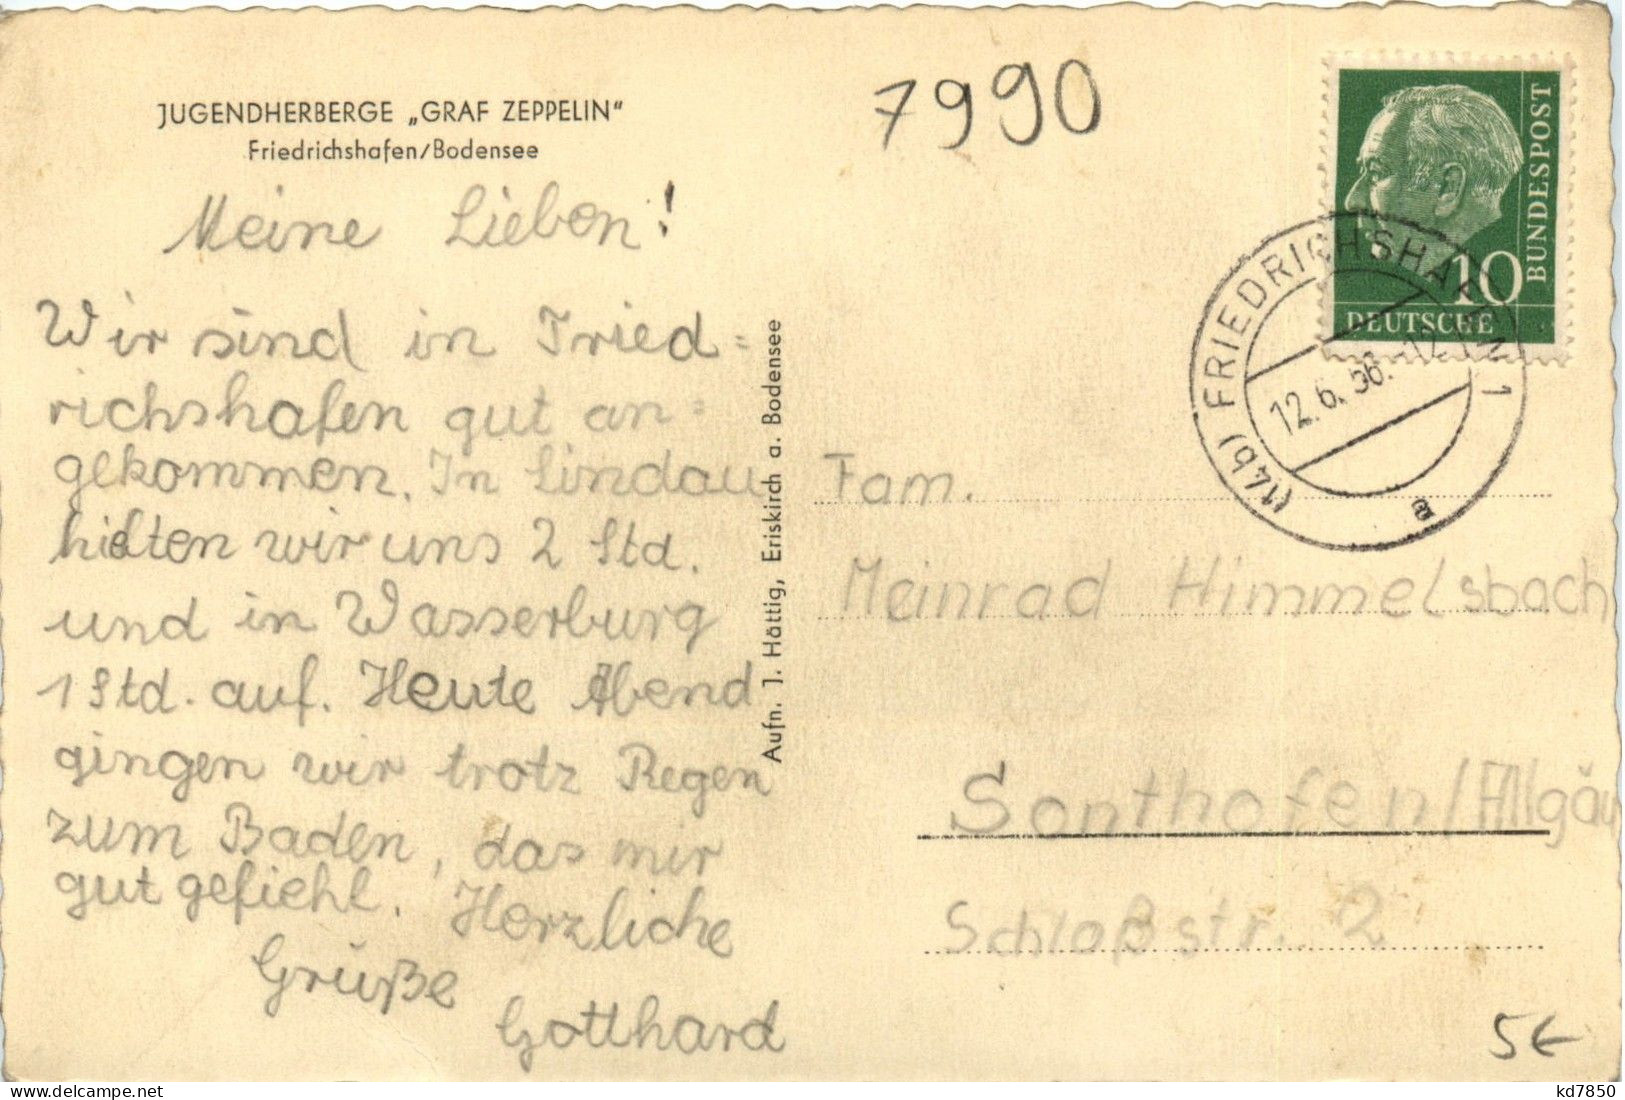 JUGENDHERBERGE „GRAF ZEPPELIN"
Friedrichshafen/Bodensee
7990
Meine Lieben!
Wir sind in Fried=
richshafen gut an=
gekommen. In Lindau
hielten wir uns 2 Std.
und in Wasserburg
1 Std. auf. Heute Abend
gingen wir trotz Regen
zum Baden, das mir
gut gefiehl. Herzliche
Grüße
Gotthard
Aufn. J. Hättig, Eriskirch a. Bodensee
DEUTSCHE
BUNDESPOST
10
(14b) FRIEDRICHSHAFEN 1
12.6.56.-12
a
Fam.
Meinrad Himmelsbach
Sonthofen/Allgäu
Schloßstr. 2
5€
www.delcampe.net
kd7850